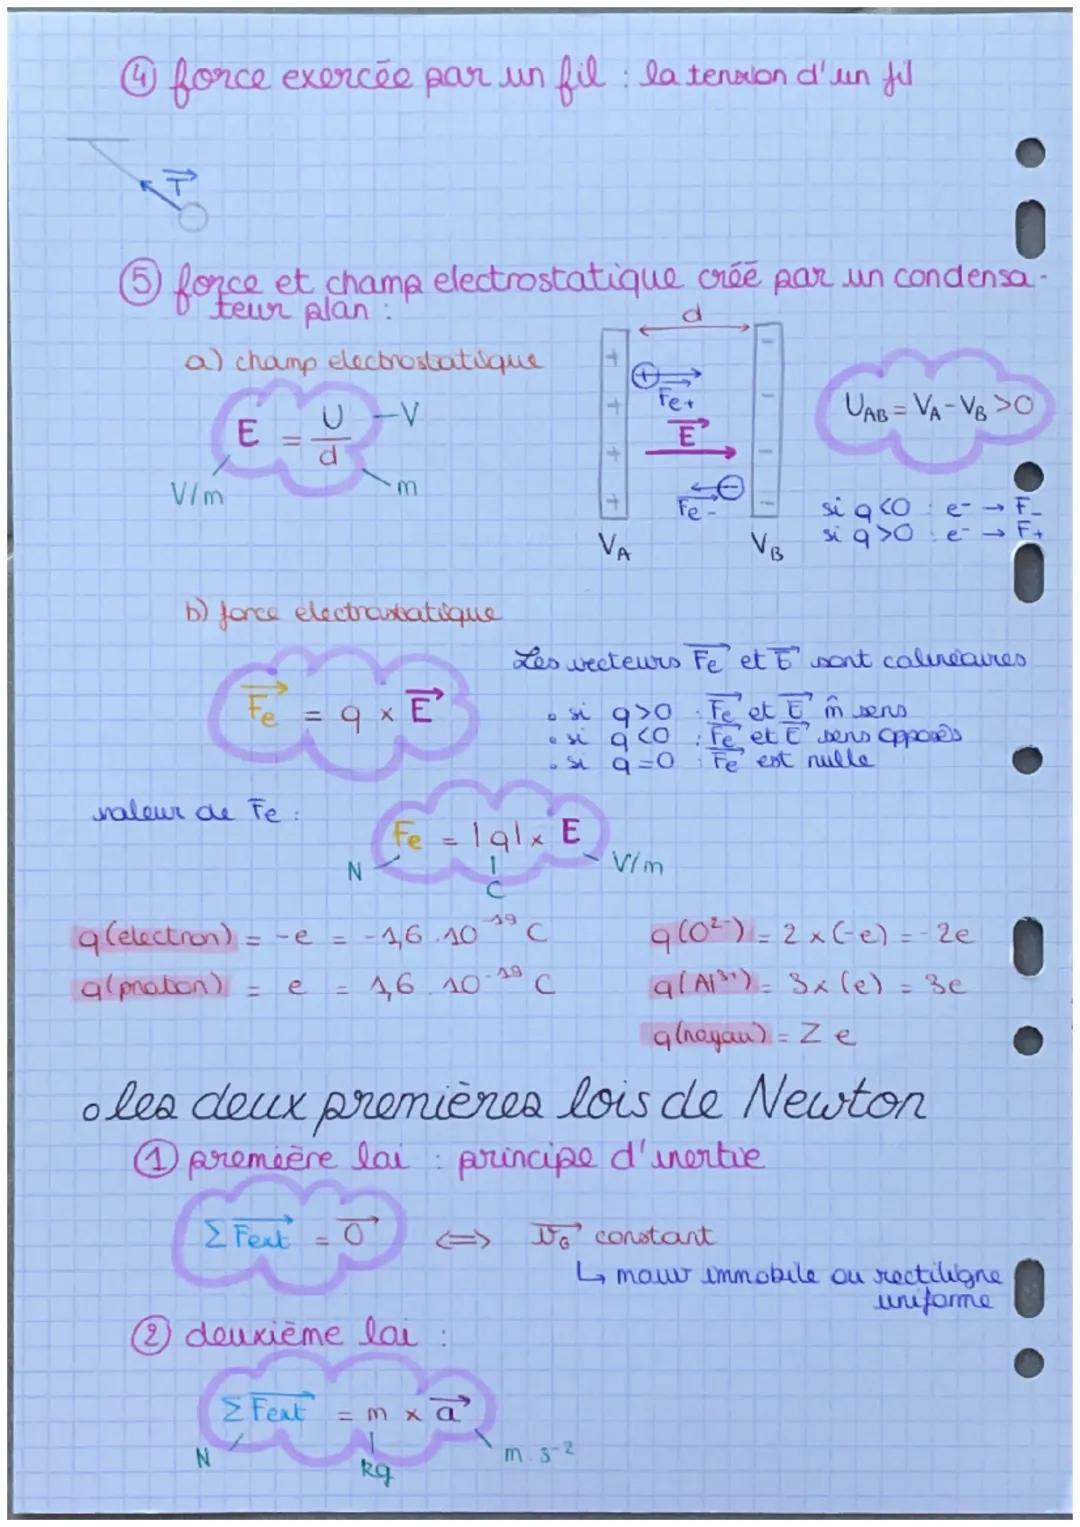 ④ force exercée par un fil : la tension d'un fil
T
⑤ force et champ electrostatique créé par un condensa-
teur plan :
d
a) champ electrostatique
E = U/d
V
V/m
m
+ + + +
- - - -
+
Fe+
E
-
Fe-
VA
VB
UAB = VA - VB > 0
si q<0 : e- → F-
si q>0 : e- → F+
b) force electrostatique
Fe = q × E
Les vecteurs Fe et E sont colinéaires
• si q>0 : Fe et E m̂ sens
• si q<0 : Fe et E sens opposés
• si q=0 : Fe est nulle
valeur de Fe :
Fe = |q| × E
N
C
V/m
q(électron) = -e = -1,6 . 10^-19 C
q(proton) = e = 1,6 . 10^-19 C
q(O²⁻) = 2 × (-e) = -2e
q(Al³⁺) = 3 × (e) = 3e
q(noyau) = Z e
• les deux premières lois de Newton
① première loi : principe d'inertie
Σ Fext = 0 <=> VG constant
↳ mouv immobile ou rectiligne
uniforme
② deuxième loi :
Σ Fext = m × a
N
kg
m.s-2